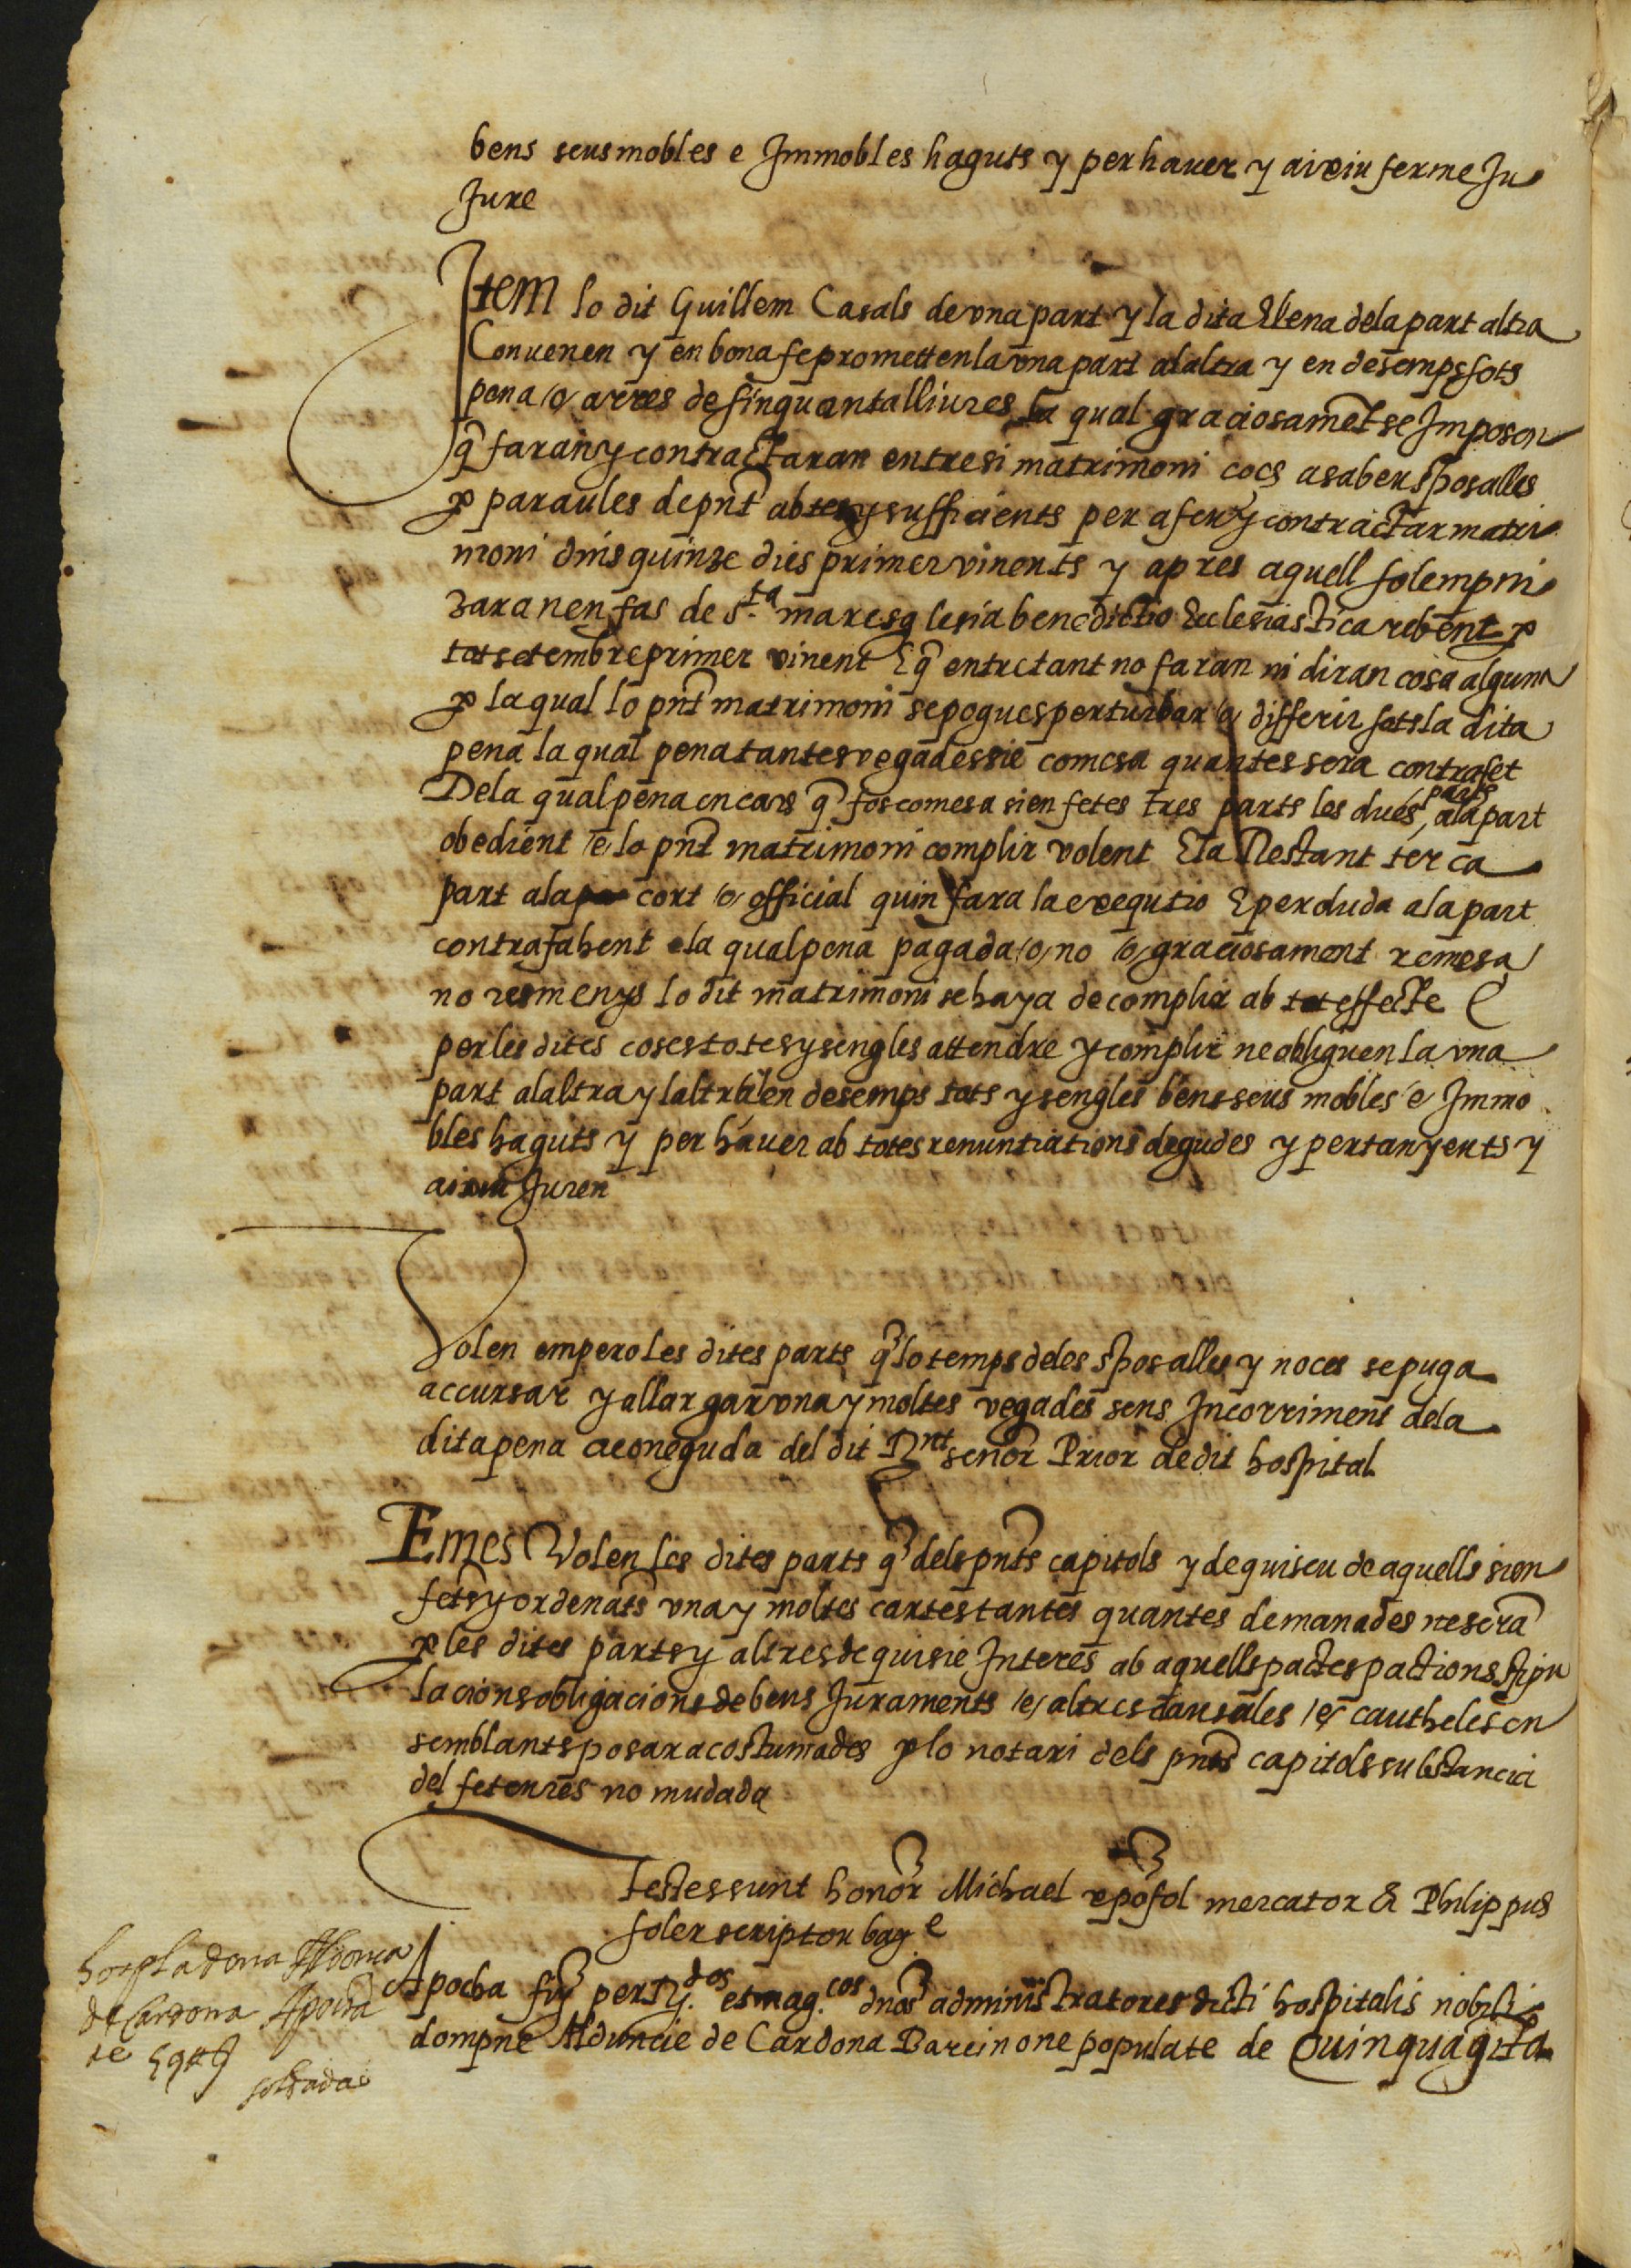 bens seus mobles e Immobles haguts y per haver y aixiu ferme Iu
Iure
Item lo dit Guillem Casals de una part y la dita Elena dela part altra
Convenen y en bona fe prometten la una part alaltra y en desemps sots
pena /o/ arres de sinquanta lliures la qual graciosamet se Imposen
q̃ faran y contractaran entre si matrimoni coes asaber sposalles
p paraules de pnt abtes y sufficients per a fer y contractar matri
moni dins quinze dies primer vinents y apres aquell solempni
zaran en fas de s.ta mare sglesia benedictio Ecclesiastica rebent p
tot setembre primer vinent E q̃ entretant no faran ni diran cosa alguna
p la qual lo pnt matrimoni se pogues perturbar /o/ differir sots la dita
pena la qual pena tantes vegades sie comesa quantes sera contrafet
De la qual pena en cars q̃ fos comesa sien fetes tres parts les dues parts ala part
obedient /e/ lo pnt matrimoni complir volent E la Restant terca
part ala cort /o/ official quin fara la exequtio E perduda ala part
contrafahent e la qual pena pagada /o/ no /o/ graciosament remesa
no resmenys lo dit matrimoni se haya de complir ab tot effecte E
per les dites coses totes y sengles attendre y complir ne obliguen la una
part alaltra y laltra en desemps tots y sengles bens seus mobles /e/ Immo
bles haguts y per haver ab totes renuntiations degudes y pertanyents y
aixiu Iuren
Volen empero les dites parts q̃ lo temps deles sposalles y noces se puga
accursar y allargar una y moltes vegades sens Incorriment dela
dita pena a coneguda del dit Rnt señor Prior de dit hospital
E mes Volen les dites parts q̃ dels pnts capitols y de quiscu de aquells sien
fets y ordenats una y moltes cartes tantes quantes demanades ne sera
p les dites parts y altres de qui sie Interes ab aquells pactes pactions stipu
lacions obligacions de bens Iuraments /e/ altres clausules /e/ cautheles en
semblants posar acostumades p lo notari dels pnts capitols substancia
del fet en res no mudada
Testes sunt honor Michael xpofol mercator & Philippus
soler scriptor bar.e
hospl a dona Aldonça
de Cardona Apocha
de
solsada
Apocha fir per R.dos et mag.cos dnos administratores dicti hospitalis nobili
dompne Alduncie de Cardona Barcinone populate de Quinquaginta